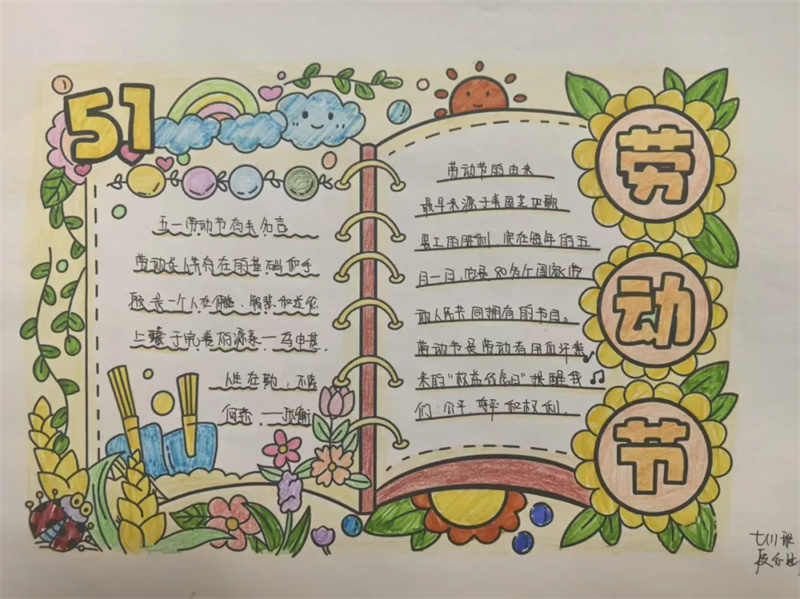 51
五一劳动节有关名言
劳动是人类存在的基础和手
段是一个人在体格、智慧和道德
上臻于完善的源泉——马申甚
人生在勤，不索
何获。——张衡
劳动节的由来
最早来源于美国芝加哥
罢工的胜利，定在每年的五
月一日，它是80多个国家劳
动人民共同拥有的节日。
劳动节是劳动者用血汗来
来的"权益纪念日"提醒我
们：公平、和权利
劳
动
节